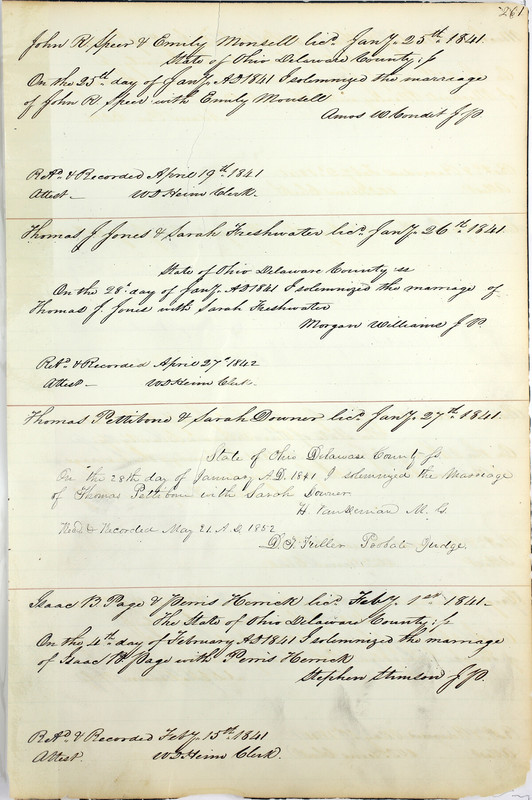 261
John R Speer & Emily Monsell licd Jany. 25th 1841.
State of Ohio Delaware County, ss
On the 25th day of Jany. AD 1841 I solemnized the marriage
of John R Speer with Emily Monsell
Amos W Condit J.P.
Retd. & Recorded April 19th 1841
Attest W D Heim Clerk.
Thomas J Jones & Sarah Freshwater licd Jany. 26th 1841
State of Ohio Delaware County ss
On the 28th day of Jany. AD 1841 I solemnized the marriage of
Thomas J. Jones with Sarah Freshwater
Morgan Williams J.P.
Retd. & Recorded April 27th 1842
Attest W D Heim Clerk.
Thomas Pettibone & Sarah Downer licd Jany. 27th 1841.
State of Ohio Delaware County ss
On the 28th day of January A.D. 1841 I solemnized the Marriage
of Thomas Pettibone with Sarah Downer
H. Van Deman M. G.
Recd & Recorded May 21 A.D. 1852
D. T. Fuller Probate Judge.
Isaac B Page & Perris Herrick licd Feby. 1st 1841
The State of Ohio Delaware County, ss
On the 4th day of February AD 1841 I solemnized the marriage
of Isaac B. Page with Perris Herrick
Stephen Stimson J.P.
Retd. & Recorded Feby. 15th 1841
Attest. W D Heim Clerk.